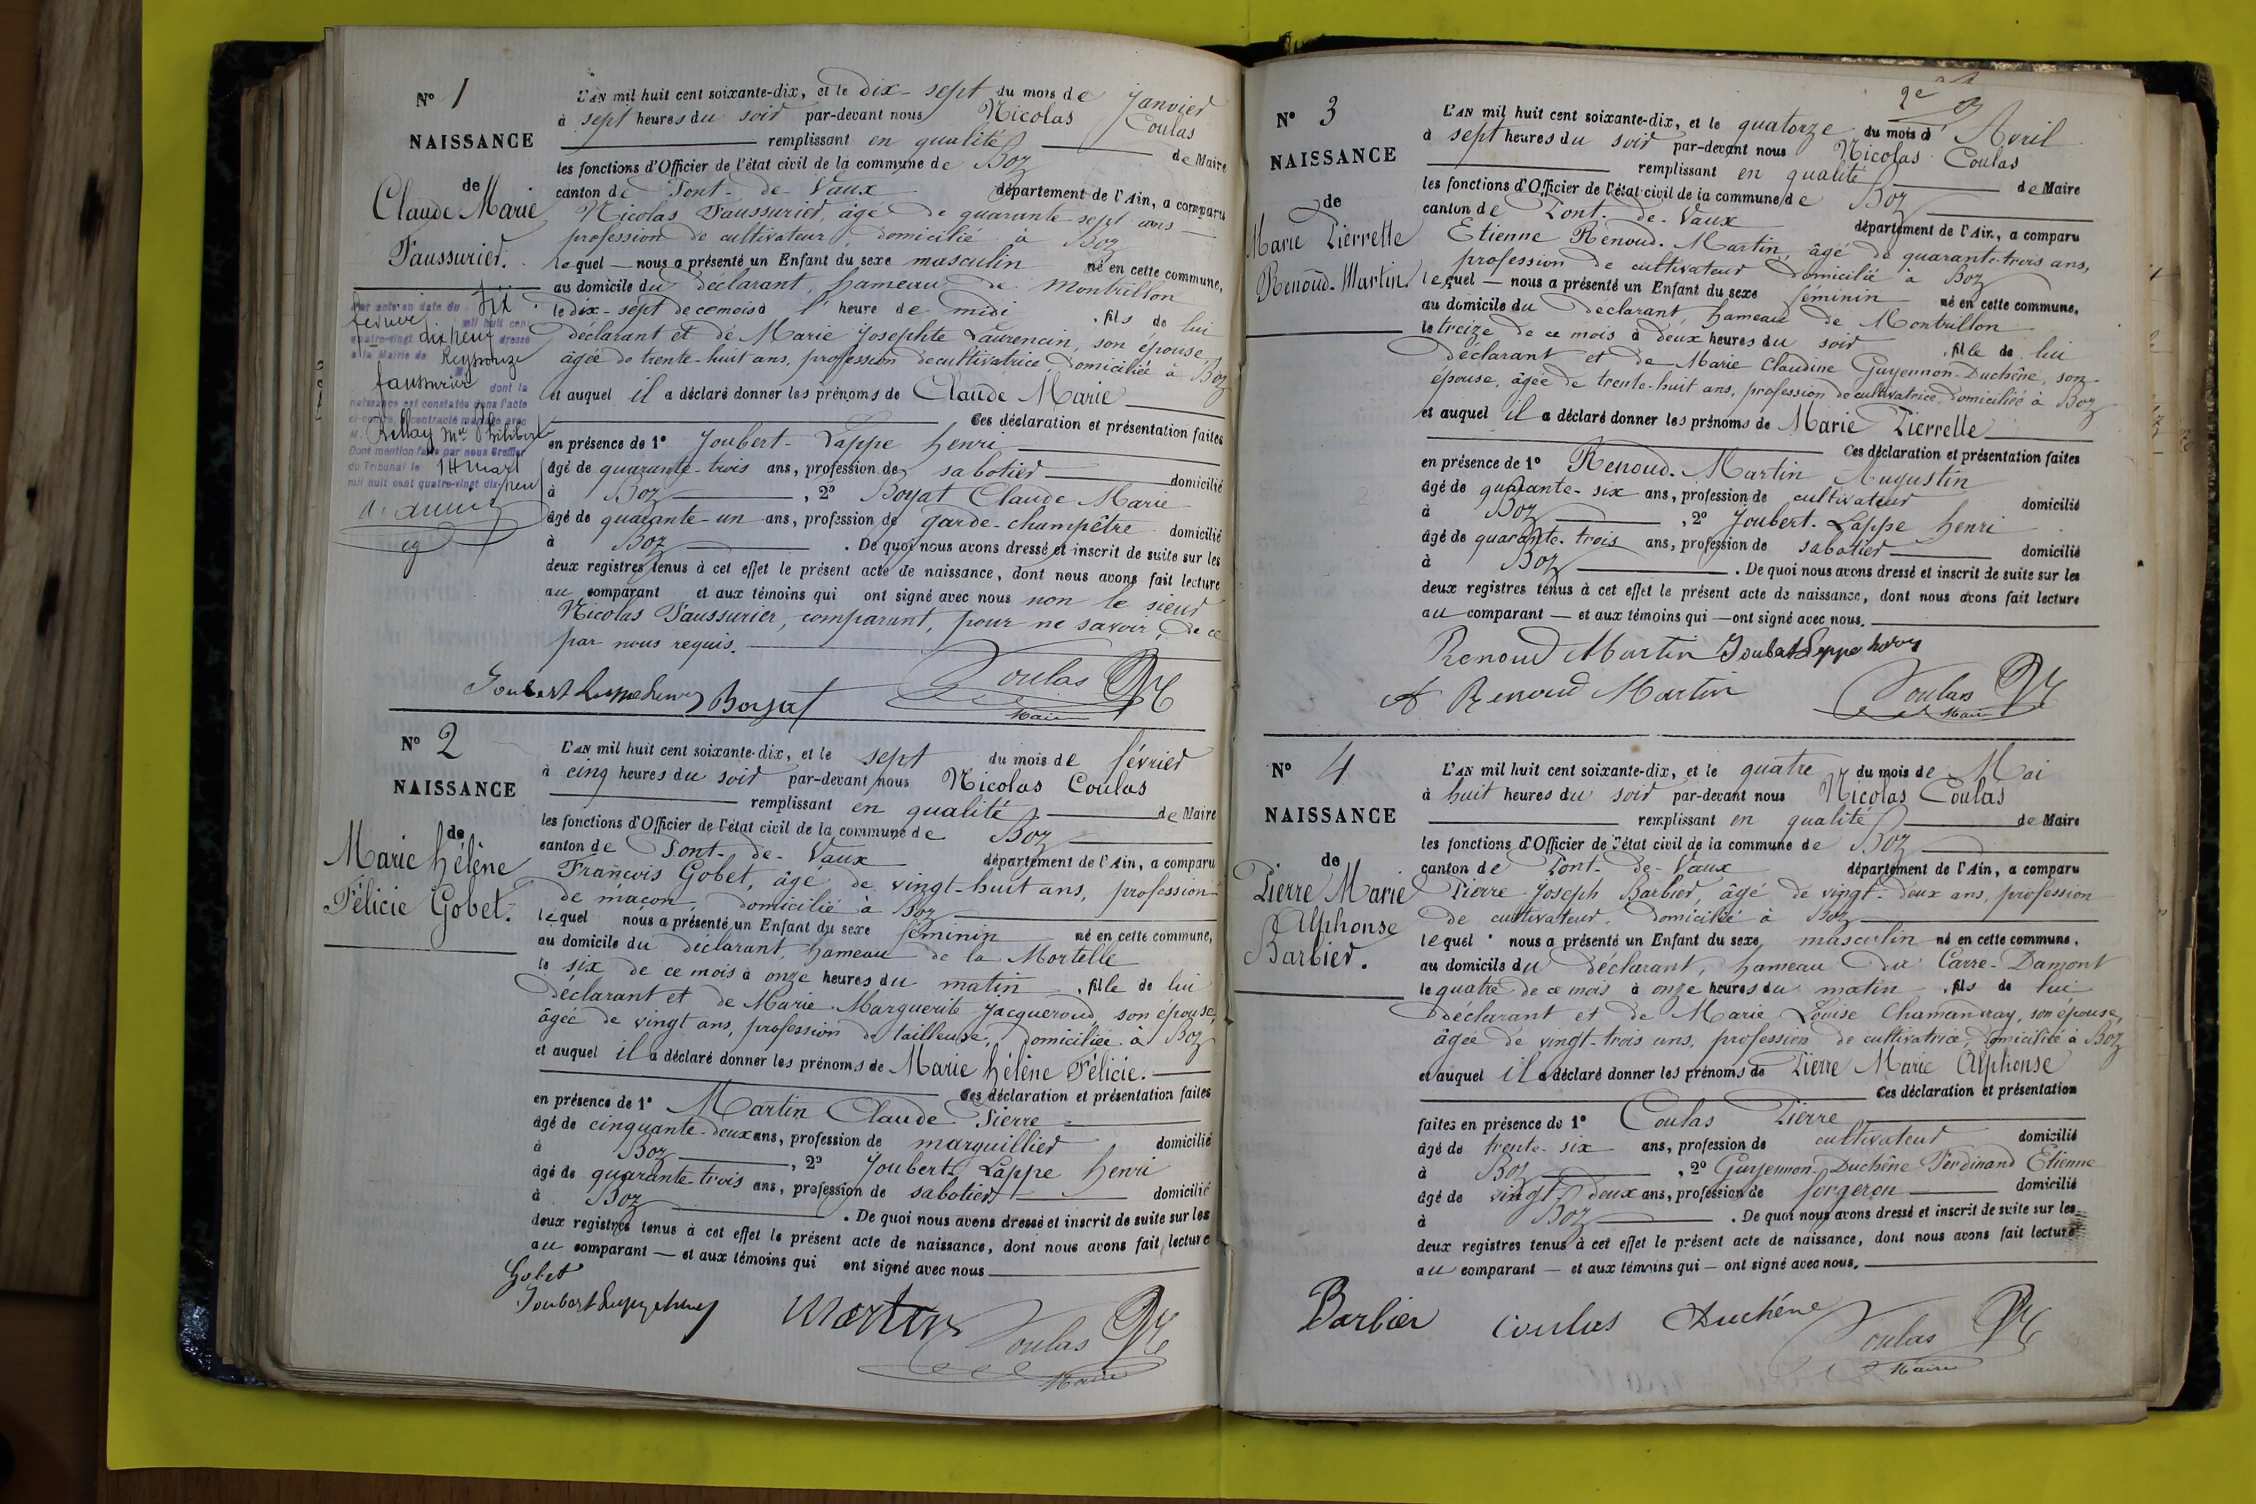 N° 1
NAISSANCE
de
Claude Marie
Faussurier.
Par acte en date du dix
février mil huit cent
quatre-vingt dix neuf dressé
à la Mairie de Reyssouze
Faussurier
dont la
naissance est constatée dans l'acte
ci-contre, a contracté mariage avec
M. Rellay Mie Philiberte
Dont mention faite par nous Greffier
du Tribunal le 14 Mars
mil huit cent quatre-vingt dix-neuf
L'AN mil huit cent soixante-dix, et le dix-sept du mois de Janvier
à sept heures du soir par-devant nous Nicolas Coulas
remplissant en qualité de Maire
les fonctions d'Officier de l'état civil de la commune de Boz
canton de Pont-de-Vaux département de l'Ain, a comparu
Nicolas Faussurier, âgé de quarante sept ans
profession de cultivateur, domicilié à Boz
lequel — nous a présenté un Enfant du sexe masculin né en cette commune,
au domicile du déclarant, hameau de Montrillon
le dix-sept de ce mois à l'heure de midi, fils de lui
déclarant et de Marie Josephte Laurencin, son épouse,
âgée de trente-huit ans, profession de cultivatrice, domiciliée à Boz
et auquel il a déclaré donner les prénoms de Claude Marie
Ces déclaration et présentation faites
en présence de 1° Joubert-Lappe henri
âgé de quarante-trois ans, profession de sabotier domicilié
à Boz, 2° Boyat Claude Marie
âgé de quarante-un ans, profession de garde-champêtre domicilié
à Boz. De quoi nous avons dressé et inscrit de suite sur les
deux registres tenus à cet effet le présent acte de naissance, dont nous avons fait lecture
au comparant et aux témoins qui ont signé avec nous non le sieur
Nicolas Faussurier, comparant, pour ne savoir, de ce
par nous requis.
Joubert Lappe henri Boyat Coulas
Maire
N° 2
NAISSANCE
de
Marie hélène
Félicie Gobet.
L'AN mil huit cent soixante-dix, et le sept du mois de février
à cinq heures du soir par-devant nous Nicolas Coulas
remplissant en qualité de Maire
les fonctions d'Officier de l'état civil de la commune de Boz
canton de Pont-de-Vaux département de l'Ain, a comparu
François Gobet, âgé de vingt-huit ans, profession
de maçon, domicilié à Boz
lequel nous a présenté un Enfant du sexe féminin né en cette commune,
au domicile du déclarant, hameau de la Mortelle
le six de ce mois à onze heures du matin, fille de lui
déclarant et de Marie Marguerite Jacqueroud, son épouse,
âgée de vingt ans, profession de tailleuse, domiciliée à Boz
et auquel il a déclaré donner les prénoms de Marie hélène Félicie.
Ces déclaration et présentation faites
en présence de 1° Martin Claude Pierre
âgé de cinquante-deux ans, profession de marguillier domicilié
à Boz, 2° Joubert-Lappe henri
âgé de quarante-trois ans, profession de sabotier domicilié
à Boz. De quoi nous avons dressé et inscrit de suite sur les
deux registres tenus à cet effet le présent acte de naissance, dont nous avons fait lecture
au comparant — et aux témoins qui ont signé avec nous
Gobet
Joubert Lappe henri Martin Coulas
Maire
2e
N° 3
NAISSANCE
de
Marie Pierrette
Renoud-Martin
L'AN mil huit cent soixante-dix, et le quatorze du mois d'Avril
à sept heures du soir par-devant nous Nicolas Coulas
remplissant en qualité de Maire
les fonctions d'Officier de l'état civil de la commune de Boz
canton de Pont-de-Vaux département de l'Ain, a comparu
Etienne Renoud-Martin, âgé de quarante-trois ans,
profession de cultivateur domicilié à Boz
lequel — nous a présenté un Enfant du sexe féminin né en cette commune,
au domicile du déclarant, hameau de Montrillon
le treize de ce mois à deux heures du soir, fille de lui
déclarant et de Marie Claudine Guyennon-Duchêne, son
épouse, âgée de trente-huit ans, profession de cultivatrice, domiciliée à Boz
et auquel il a déclaré donner les prénoms de Marie Pierrette
Ces déclaration et présentation faites
en présence de 1° Renoud-Martin Augustin
âgé de quarante-six ans, profession de cultivateur domicilié
à Boz, 2° Joubert-Lappe henri
âgé de quarante-trois ans, profession de sabotier domicilié
à Boz. De quoi nous avons dressé et inscrit de suite sur les
deux registres tenus à cet effet le présent acte de naissance, dont nous avons fait lecture
au comparant — et aux témoins qui — ont signé avec nous.
Renoud Martin Joubert Lappe henri
A Renoud Martin Coulas
Maire
N° 4
NAISSANCE
de
Pierre Marie
Alphonse
Barbier.
L'AN mil huit cent soixante-dix, et le quatre du mois de Mai
à huit heures du soir par-devant nous Nicolas Coulas
remplissant en qualité de Maire
les fonctions d'Officier de l'état civil de la commune de Boz
canton de Pont-de-Vaux département de l'Ain, a comparu
Pierre Joseph Barbier, âgé de vingt-deux ans, profession
de cultivateur, domicilié à Boz
lequel nous a présenté un Enfant du sexe masculin né en cette commune,
au domicile du déclarant, hameau du Carre-Damont
le quatre de ce mois à onze heures du matin, fils de lui
déclarant et de Marie Louise Chamandray, son épouse,
âgée de vingt-trois ans, profession de cultivatrice, domiciliée à Boz
et auquel il a déclaré donner les prénoms de Pierre Marie Alphonse
Ces déclaration et présentation
faites en présence de 1° Coulas Pierre
âgé de trente-six ans, profession de cultivateur domicilié
à Boz, 2° Guyennon-Duchêne Ferdinand Etienne
âgé de vingt-deux ans, profession de forgeron domicilié
à Boz. De quoi nous avons dressé et inscrit de suite sur les
deux registres tenus à cet effet le présent acte de naissance, dont nous avons fait lecture
au comparant — et aux témoins qui — ont signé avec nous.
Barbier Coulas Duchêne Coulas
Maire